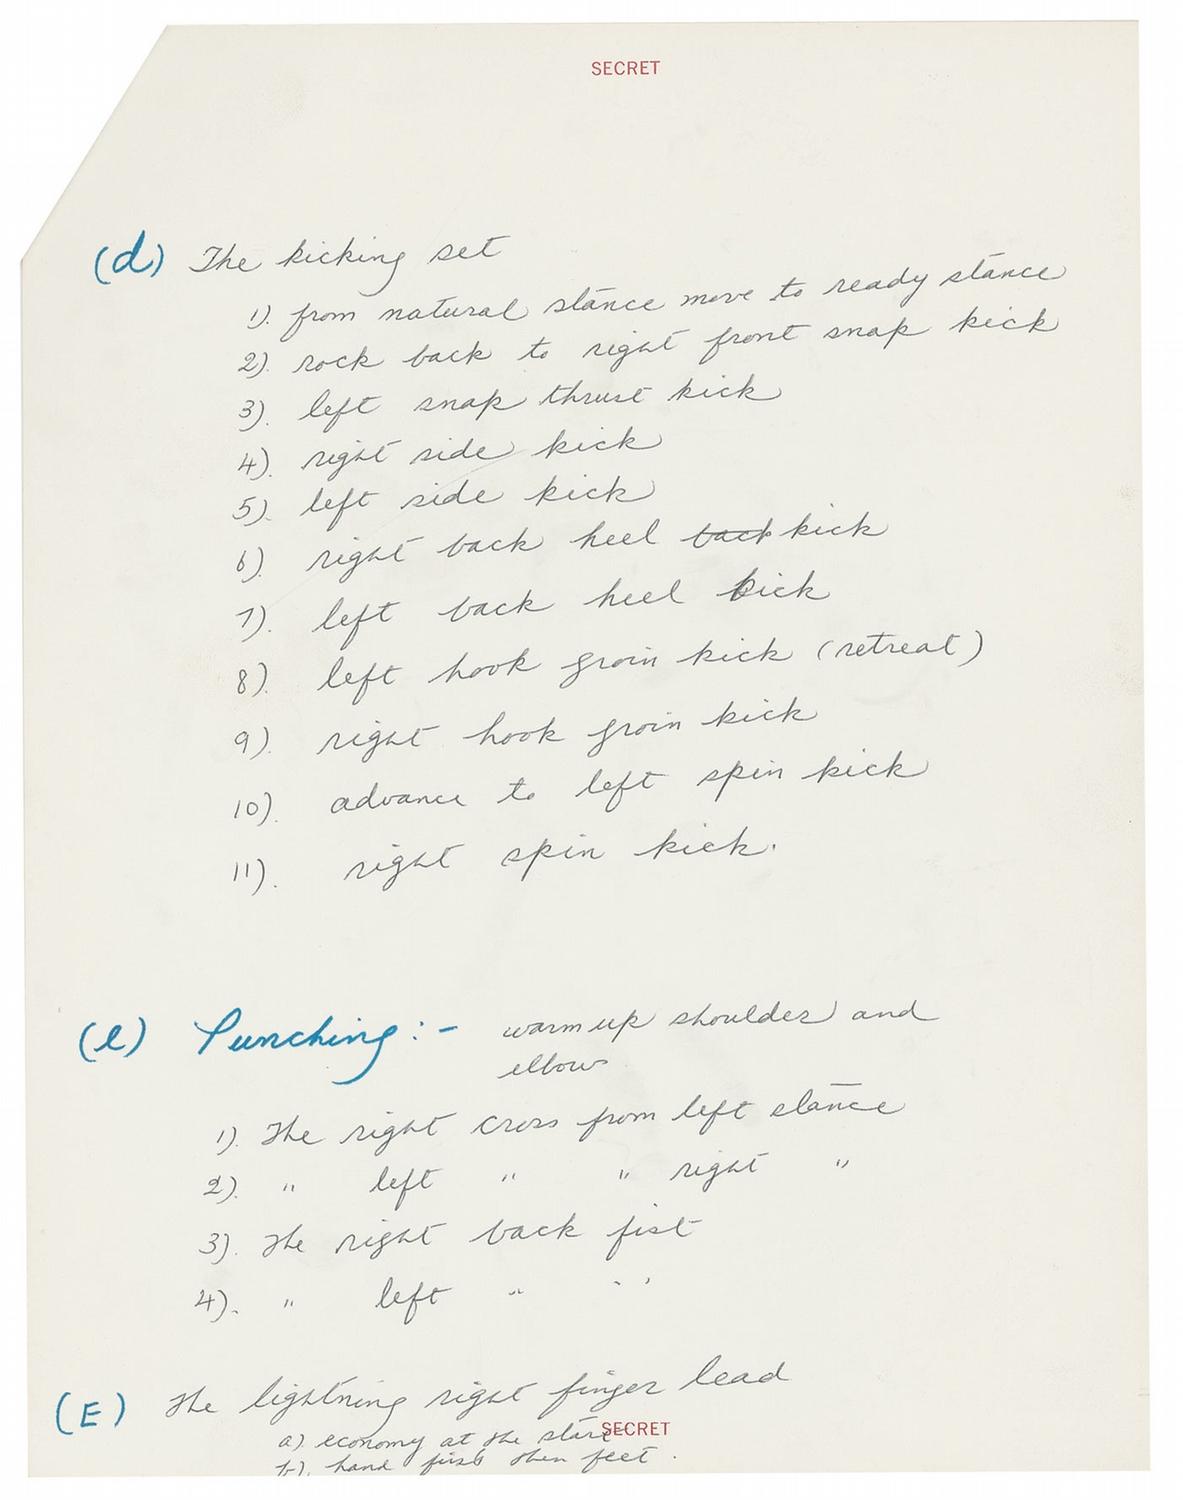 SECRET
(d) The kicking set
1). from natural stance move to ready stance
2). rock back to right front snap kick
3). left snap thrust kick
4). right side kick
5). left side kick
6). right back heel back kick
7). left back heel kick
8). left hook groin kick (retreat)
9). right hook groin kick
10). advance to left spin kick
11). right spin kick.
(e) Punching :- warm up shoulder and
elbows
1). The right cross from left stance
2). " left " " right "
3). The right back fist
4). " left " "
(E) The lightning right finger lead
SECRET
a) economy at the start
b). hand first then feet.